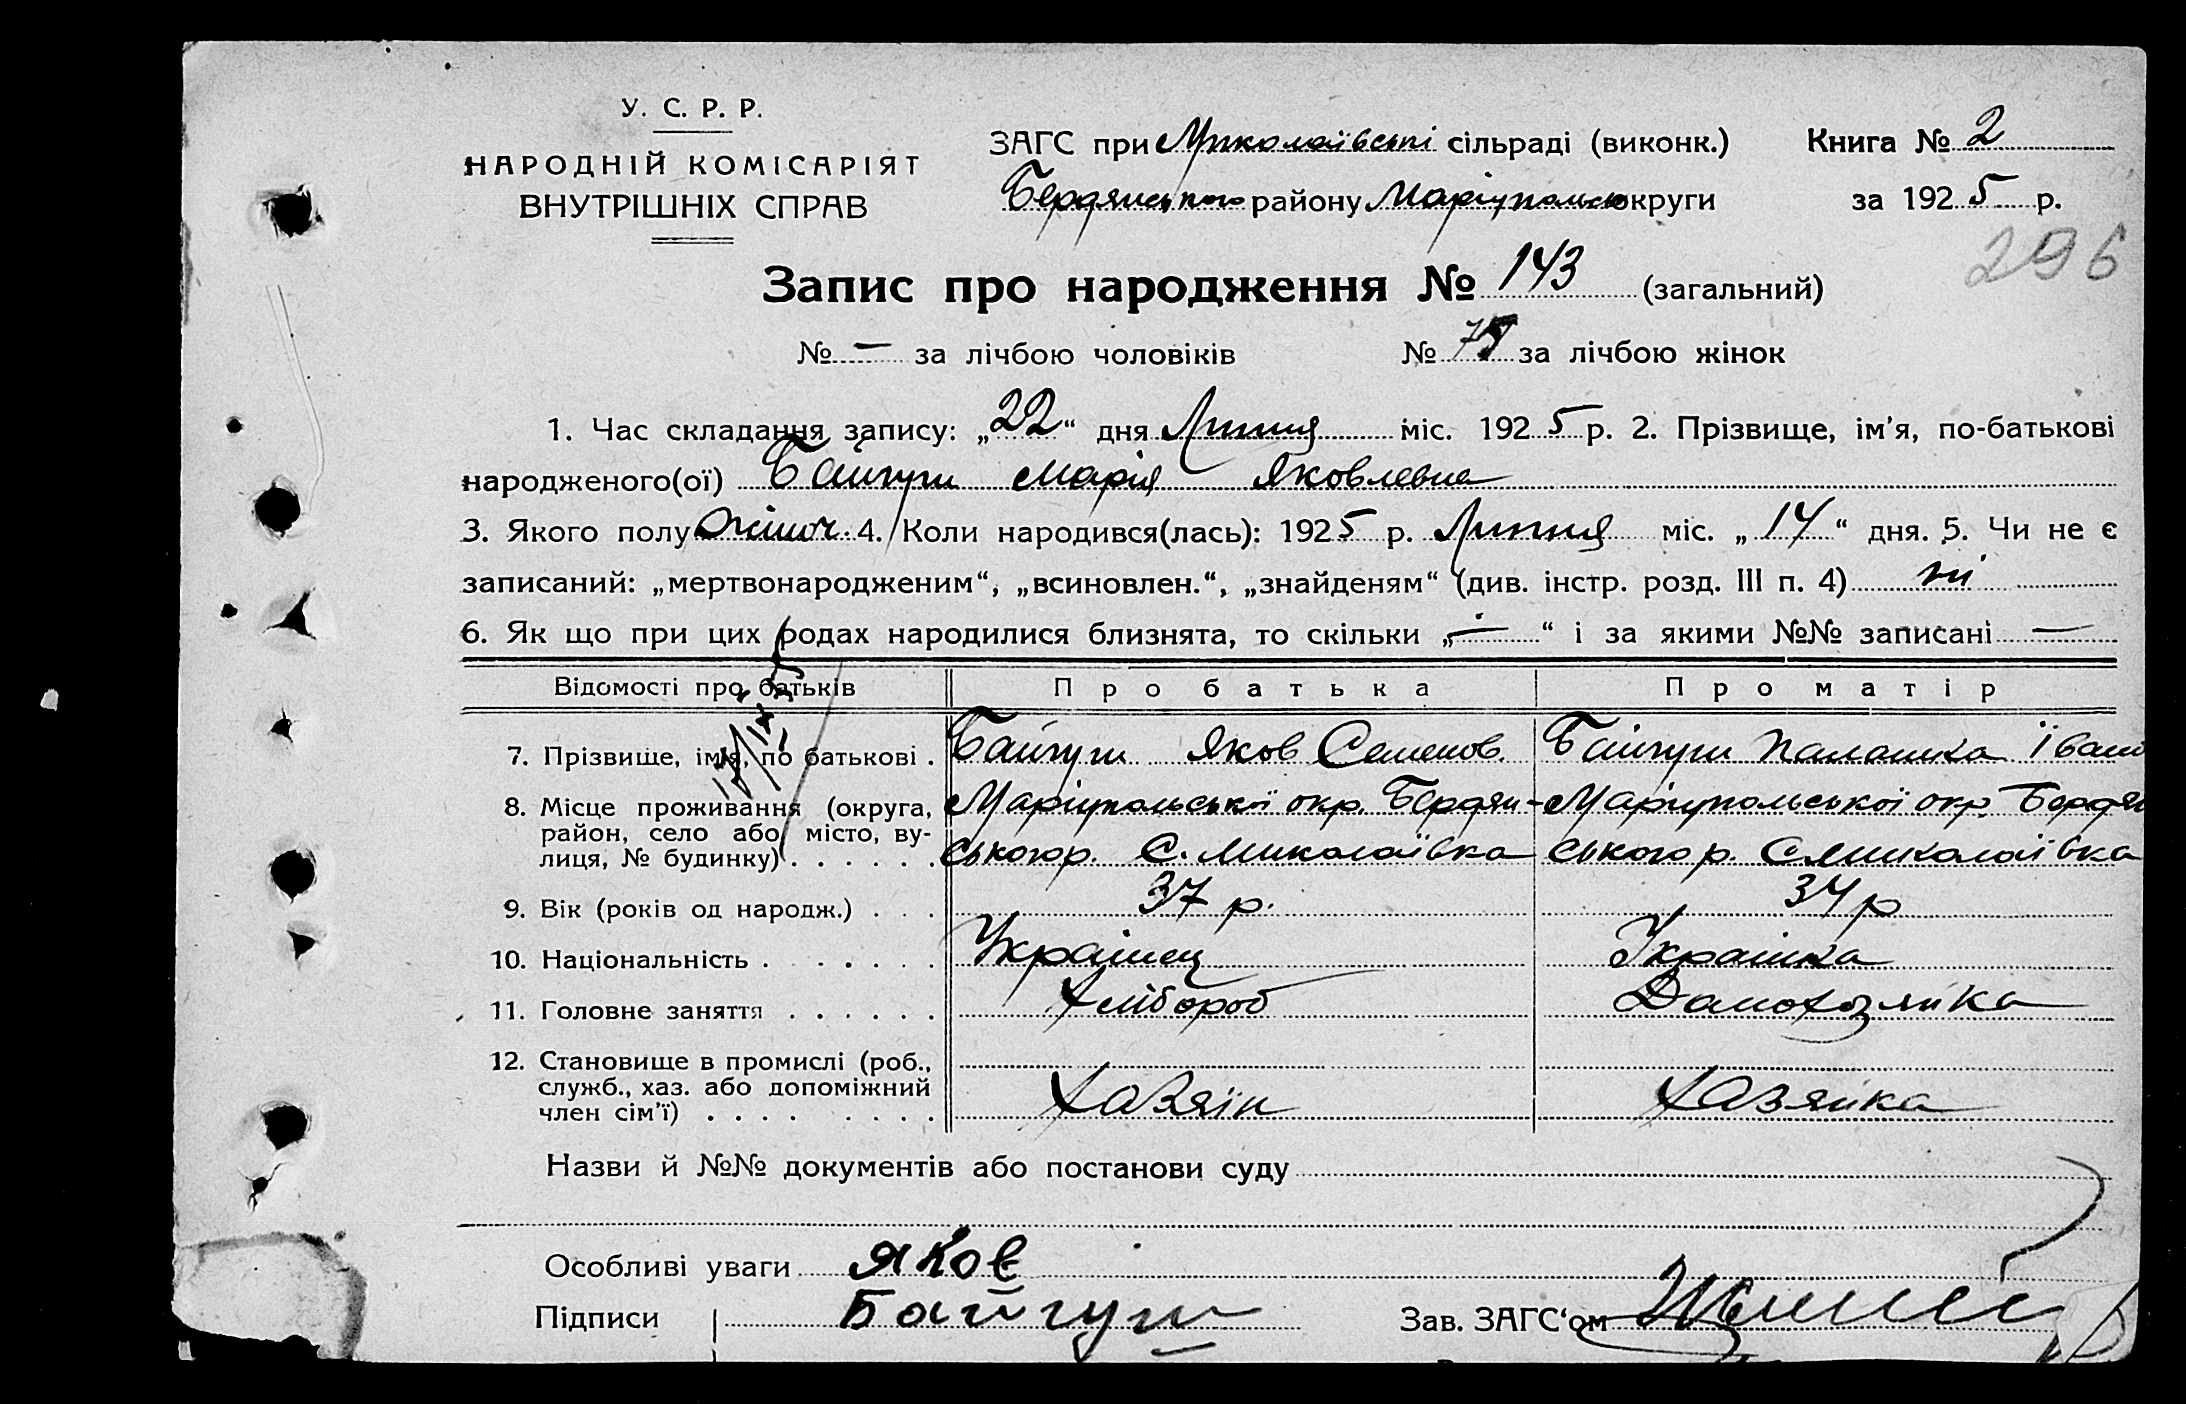 У. С. Р. Р.
НАРОДНІЙ КОМІСАРІЯТ
ВНУТРІШНІХ СПРАВ
ЗАГС при Миколаївські сільраді (виконк.) Книга № 2
Бердянського району Маріупольсь округи за 1925 р.
296
Запис про народження № 143 (загальний)
№ — за лічбою чоловіків № за лічбою жінок
1. Час складання запису: „22“ дня Липня міс. 1925 р. 2. Прізвище, ім'я, по-батькові
народженого(ої) Байгуш Марія Яковлевна
3. Якого полу жіноч. 4. Коли народився(лась): 1925 р. Липня міс. „14“ дня. 5. Чи не є
записаний: „мертвонародженим“, „всиновлен.“, „знайденям“ (див. інстр. розд. III п. 4) ні
6. Як що при цих родах народилися близнята, то скільки „—“ і за якими №№ записані —
Відомості про батьків Про батька Про матір
7. Прізвище, імя, по батькові . Байгуш Яков Семенов. Байгуш Палашка Івано
8. Місце проживання (округа, Маріупольської окр. Бердян- Маріупольської окр. Бердян
район, село або місто, ву-
лиця, № будинку) . . . . . . ського р. С. Миколаївка ського р. С Миколаївка
9. Вік (років од народж.) . . . 37 р. 34 р
10. Національність . . . . . . Українец Українка
11. Головне заняття . . . . . . Хлібороб Домохозяйка
12. Становище в промислі (роб.,
служб., хаз. або допоміжний
член сім'ї) . . . . . . . . Хазяїн Хазяйка
Назви й №№ документів або постанови суду
Особливі уваги Яков
Підписи Байгуш Зав. ЗАГС‘ом